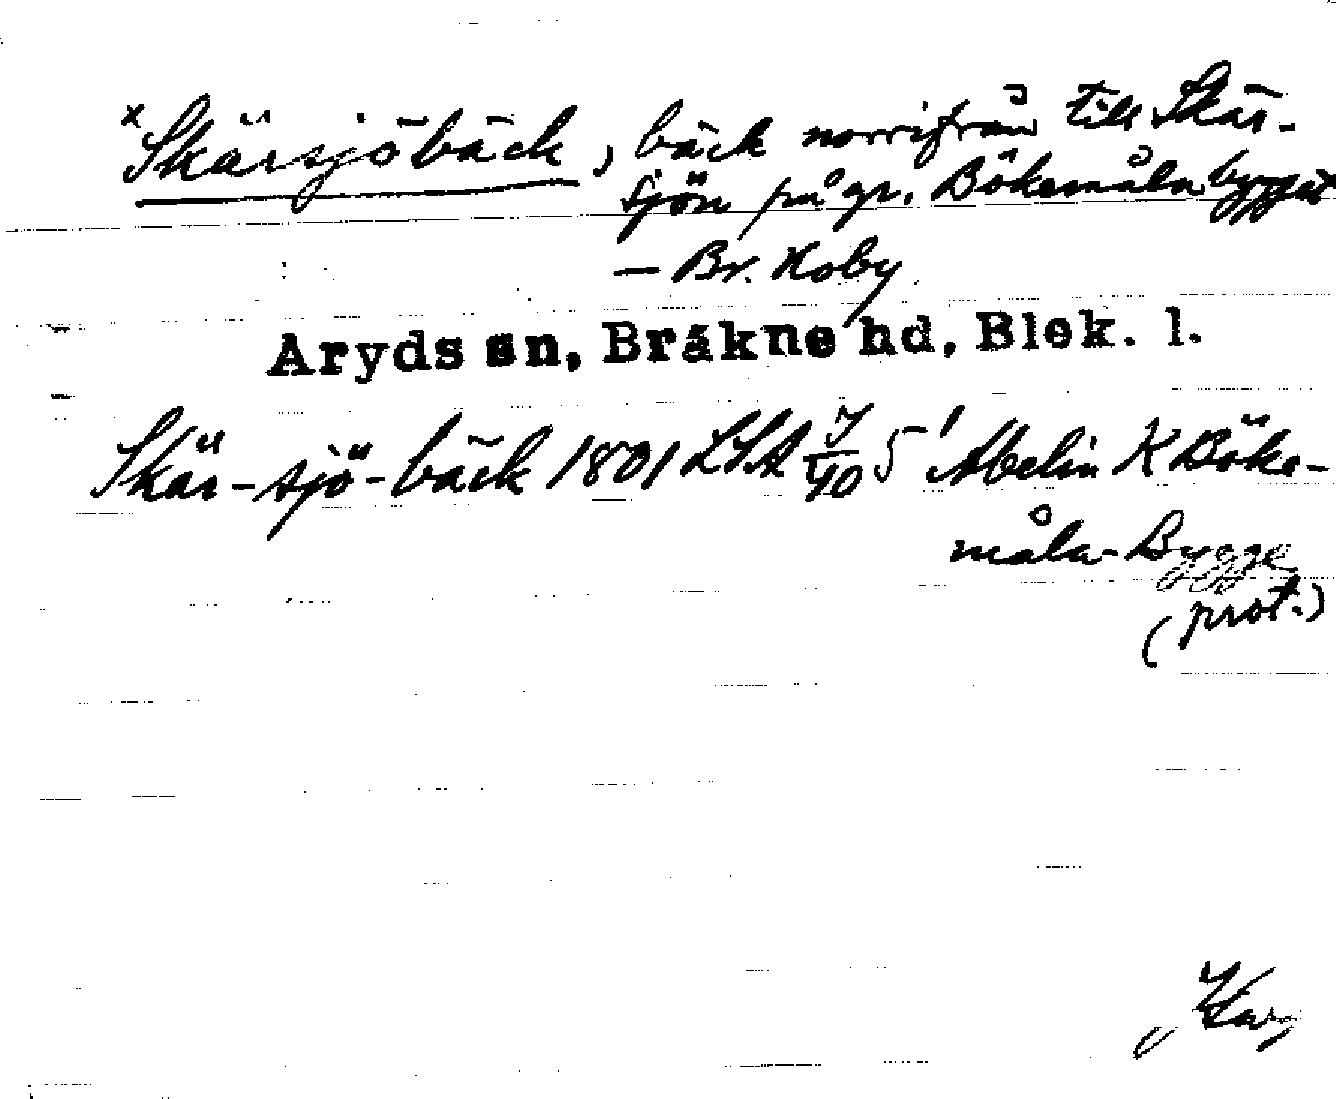 x Skärsjöbäck, bäck norrifrån till Skär-
sjön på gr. Bökemålabygget
— Br. Hoby
Aryds sn, Bräkne hd, Blek. l.
Skär-sjö-bäck 1801 LSA 7/40 5' Abelin K Böke-
måla-Bygge
(prot.)